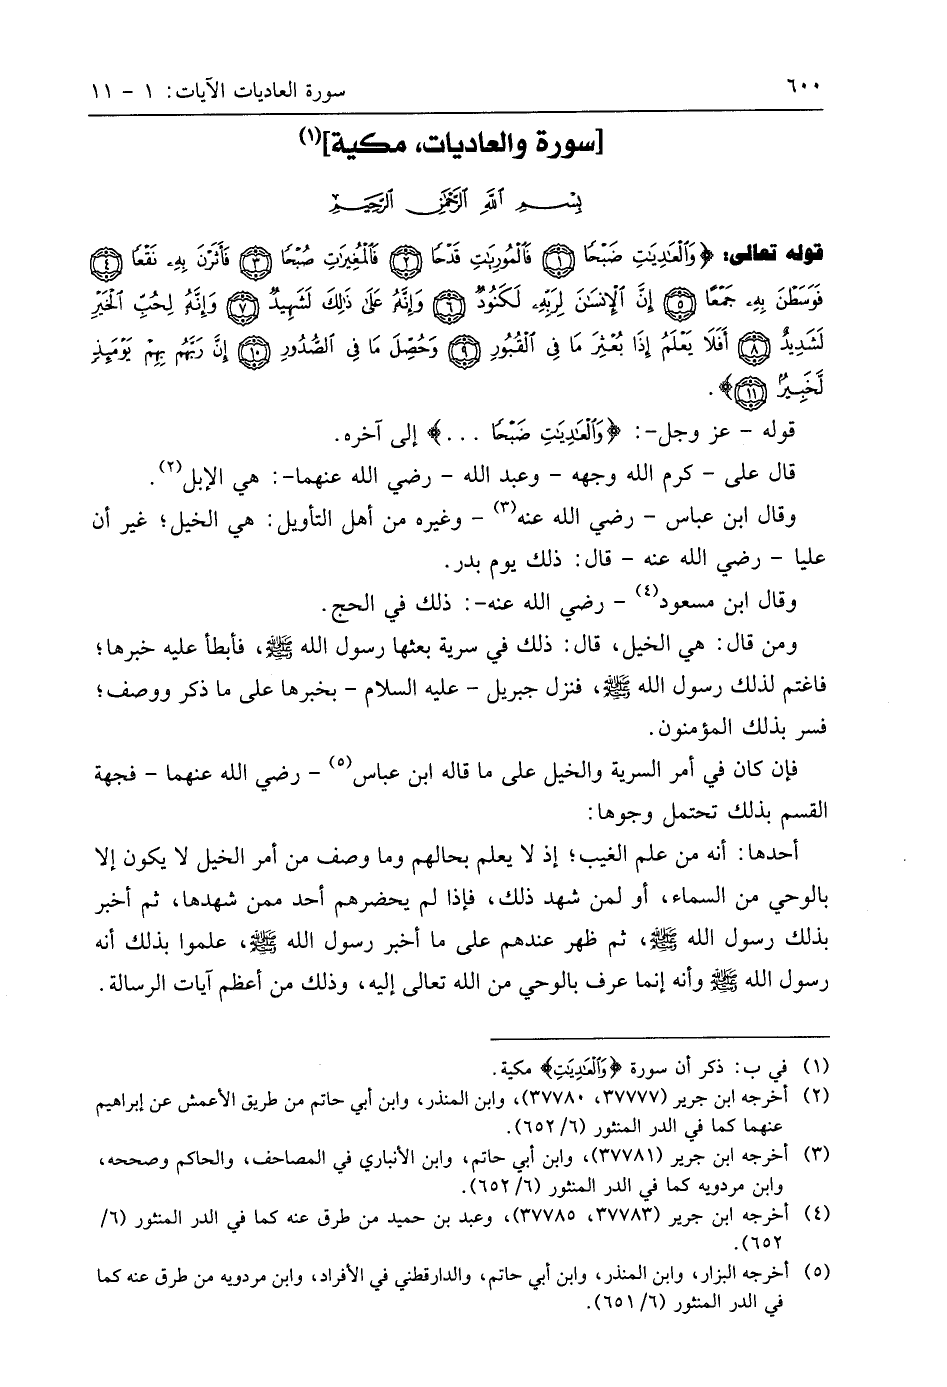 ٦٠٠ سورة العاديات الآيات: ١ - ١١
[سورة والعاديات، مكية](١)
بِسْمِ اللَّهِ الرَّحْمَٰنِ الرَّحِيمِ
قوله تعالى: ﴿وَٱلْعَٰدِيَٰتِ ضَبْحًا ۝١ فَٱلْمُورِيَٰتِ قَدْحًا ۝٢ فَٱلْمُغِيرَٰتِ صُبْحًا ۝٣ فَأَثَرْنَ بِهِۦ نَقْعًا ۝٤
فَوَسَطْنَ بِهِۦ جَمْعًا ۝٥ إِنَّ ٱلْإِنسَٰنَ لِرَبِّهِۦ لَكَنُودٌ ۝٦ وَإِنَّهُۥ عَلَىٰ ذَٰلِكَ لَشَهِيدٌ ۝٧ وَإِنَّهُۥ لِحُبِّ ٱلْخَيْرِ
لَشَدِيدٌ ۝٨ أَفَلَا يَعْلَمُ إِذَا بُعْثِرَ مَا فِى ٱلْقُبُورِ ۝٩ وَحُصِّلَ مَا فِى ٱلصُّدُورِ ۝١٠ إِنَّ رَبَّهُم بِهِمْ يَوْمَئِذٍ
لَّخَبِيرٌۢ ۝١١﴾.
قوله - عز وجل-: ﴿وَٱلْعَٰدِيَٰتِ ضَبْحًا ...﴾ إلى آخره.
قال على - كرم الله وجهه - وعبد الله - رضي الله عنهما-: هي الإبل(٢).
وقال ابن عباس - رضي الله عنه(٣) - وغيره من أهل التأويل: هي الخيل؛ غير أن
عليا - رضي الله عنه - قال: ذلك يوم بدر.
وقال ابن مسعود(٤) - رضي الله عنه-: ذلك في الحج.
ومن قال: هي الخيل، قال: ذلك في سرية بعثها رسول الله ﷺ، فأبطأ عليه خبرها؛
فاغتم لذلك رسول الله ﷺ، فنزل جبريل - عليه السلام - بخبرها على ما ذكر ووصف؛
فسر بذلك المؤمنون.
فإن كان في أمر السرية والخيل على ما قاله ابن عباس(٥) - رضي الله عنهما - فجهة
القسم بذلك تحتمل وجوها:
أحدها: أنه من علم الغيب؛ إذ لا يعلم بحالهم وما وصف من أمر الخيل لا يكون إلا
بالوحي من السماء، أو لمن شهد ذلك، فإذا لم يحضرهم أحد ممن شهدها، ثم أخبر
بذلك رسول الله ﷺ، ثم ظهر عندهم على ما أخبر رسول الله ﷺ، علموا بذلك أنه
رسول الله ﷺ وأنه إنما عرف بالوحي من الله تعالى إليه، وذلك من أعظم آيات الرسالة.
(١) في ب: ذكر أن سورة ﴿وَٱلْعَٰدِيَٰتِ﴾ مكية.
(٢) أخرجه ابن جرير (٣٧٧٧٧، ٣٧٧٨٠)، وابن المنذر، وابن أبي حاتم من طريق الأعمش عن إبراهيم
عنهما كما في الدر المنثور (٦/ ٦٥٢).
(٣) أخرجه ابن جرير (٣٧٧٨١)، وابن أبي حاتم، وابن الأنباري في المصاحف، والحاكم وصححه،
وابن مردويه كما في الدر المنثور (٦/ ٦٥٢).
(٤) أخرجه ابن جرير (٣٧٧٨٣، ٣٧٧٨٥)، وعبد بن حميد من طرق عنه كما في الدر المنثور (٦/
٦٥٢).
(٥) أخرجه البزار، وابن المنذر، وابن أبي حاتم، والدارقطني في الأفراد، وابن مردويه من طرق عنه كما
في الدر المنثور (٦/ ٦٥١).